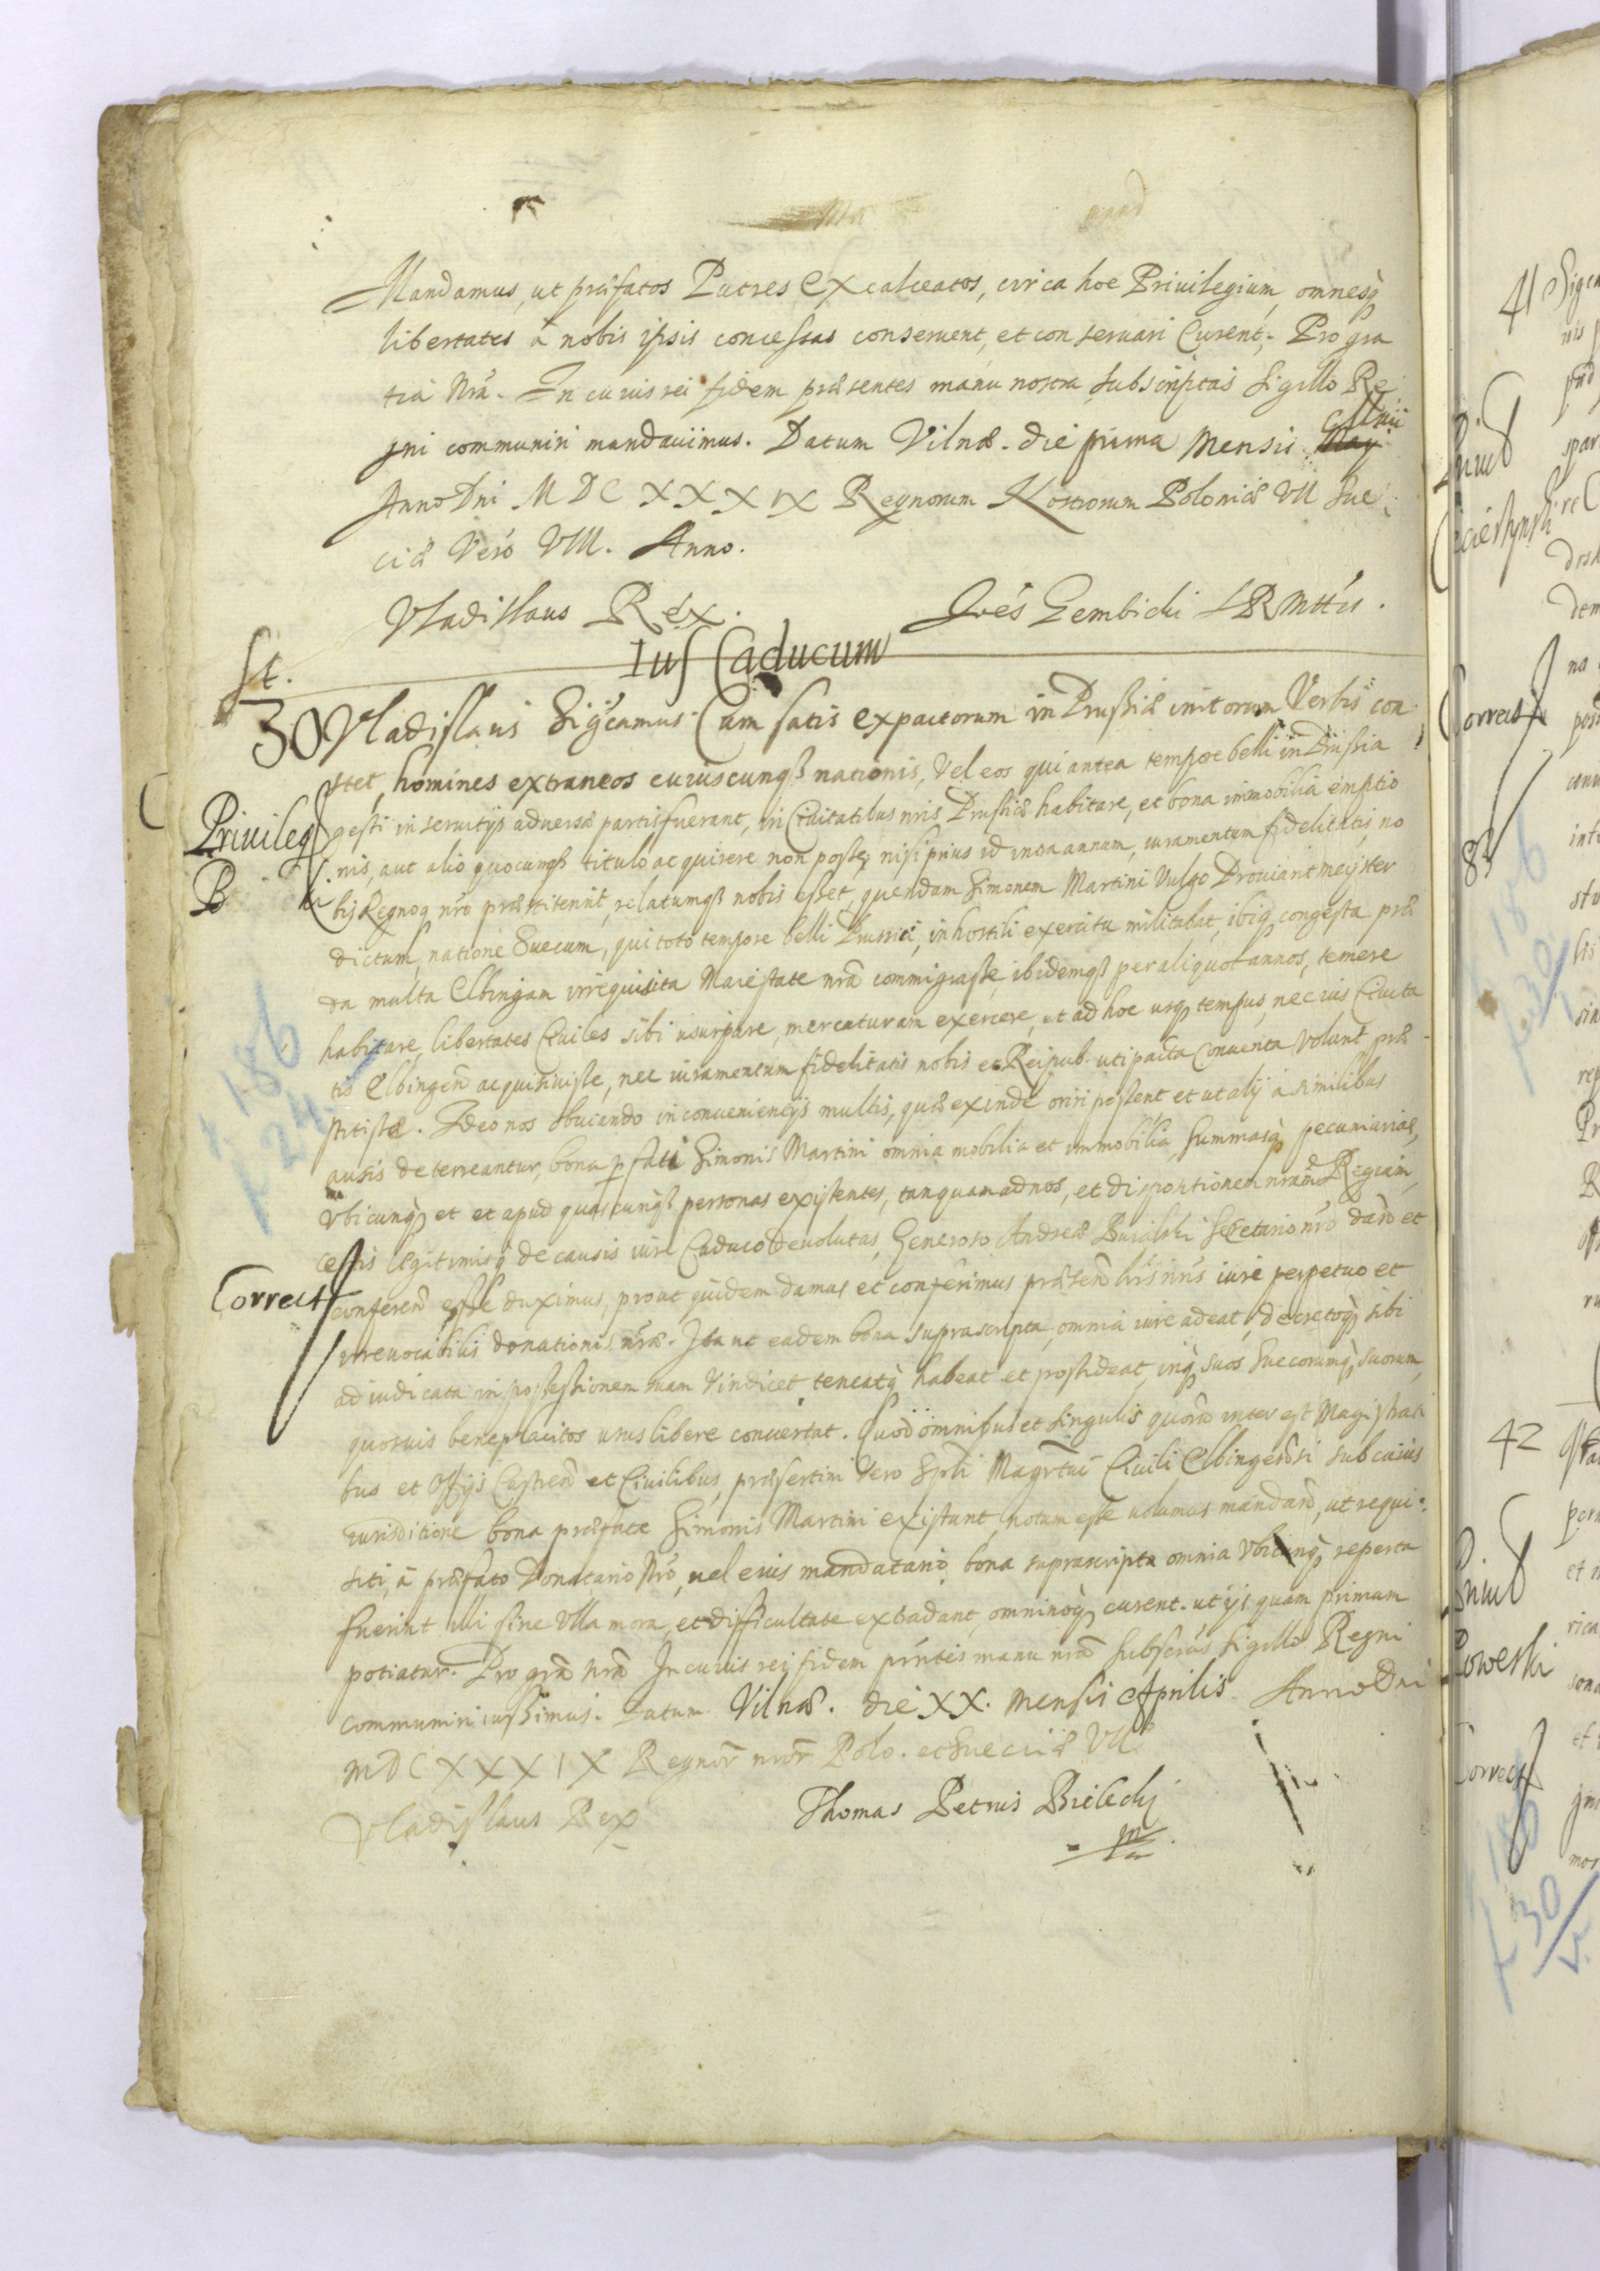 Mandamus, ut præfatos Patres Excalceatos, circa hoc Priuilegium, omnesq
libertates á nobis ipsis concessas conseruent, et conseruari Curent, Pro gra
tia Nrá. In cuius rei fidem præsentes manu nostra subscriptas Sigillo Re
gni communiri mandauimus. Datum Vilnæ. die prima Mensis May
Anno Dni MDCXXXIX Regnorum Nostrorum Poloniæ VII Sue
ciæ Veró VIII. Anno.
Vladislaus Rex. Joēs Gembicki
Ius Caducum
St.
30 Vladislaus Sigcamus. Cum satis ex pactorum in Prussiæ initorum Verbis con
stet, homines extraneos cuiuscunq nationis, Vel eos qui antea tempore belli in Prussia
Priuileg
gesti in seruitijs aduersæ partis fuerant, in Ciuitatibus nris Prussiæ habitare, et bona immobilia emptio
nis, aut alio quocunq titulo acquirere non posse, nisi prius id incaannum, iuramentum fidelitatis, no
B
bis Regnoq nró præstiterint, relatumq nobis esset, quendam Simonem Martini Vulgo Prouiantmeyster
dictum, natione Suecum, qui toto tempore belli Prussici, in hostili exercitu militabat, ibiq congesta præ
da multa Elbingam irrequisita Maiestate nrá commigrasse, ibidemq per aliquot annos, temere
habitare, libertates Ciuiles sibi usurpare, mercaturam exercere, et ad hoc usq tempus, nec ius Ciuita
tis Elbingeñ acquisiuisse, nec iuramentum fidelitatis nobis et Reipub. uti pacta Conuenta volunt, præ
stitisse. Ideo nos obuiando inconuenientijs multis, quæ exinde oriri possent et ut alij á similibus
ausis deterreantur, bona pfati Simonis Martini omnia mobilia et immobilia, Summasq pecuniarias,
Vbicunq et et apud quascunq personas existentes, tanquam ad nos, et dispositionem nram Regiam,
certis legitimisq de causis iure Caduco deuolutas, Generoso Andreæ Secretario nró dand et
Correct
conferend esse duximus, prout quidem damus et conferimus præsen iure perpetuo et
irreuocabilis donationis nræ. Ita ut eadem bona suprascripta omnia iure adeat, decretoq sibi
adiudicata in possessionem suam Vindicet, teneatq habeat et possideat, inq suos Suecorumq suorum
quosuis beneplacitos usus libere conuertat. Quod omnibus et singulis quoru interest Magistrati
bus et Offijs Castren et Ciuilibus, præsertim Vero Spli Magrtui Ciuili Elbingensi sub cuius
iurisditione bona præfate Simonis Martini existunt, notum esse uolumus mandand, ut requi
siti, á præfato Donatario Nró, uel eius mandatario bona suprascripta omnia Vbicunq reperta
fuerint illi sine Ulla mora, et difficultate extradant, omninoq curent. ut ijs quam primum
potiatur. Pro gra nra In cuius rei fidem pntes manu nra Subscrās Sigillo Regni
communiri iussimus. Datum Vilnæ. die XX. Mensis Aprilis Anno Dni
MDCXXXIX Regnor nror Polo. et Sueciæ VII.
Vladislaus Rex Thomas Petrus Bielecky
186
24
41
Correct
83
186
30
42
Correct
186
30
v.